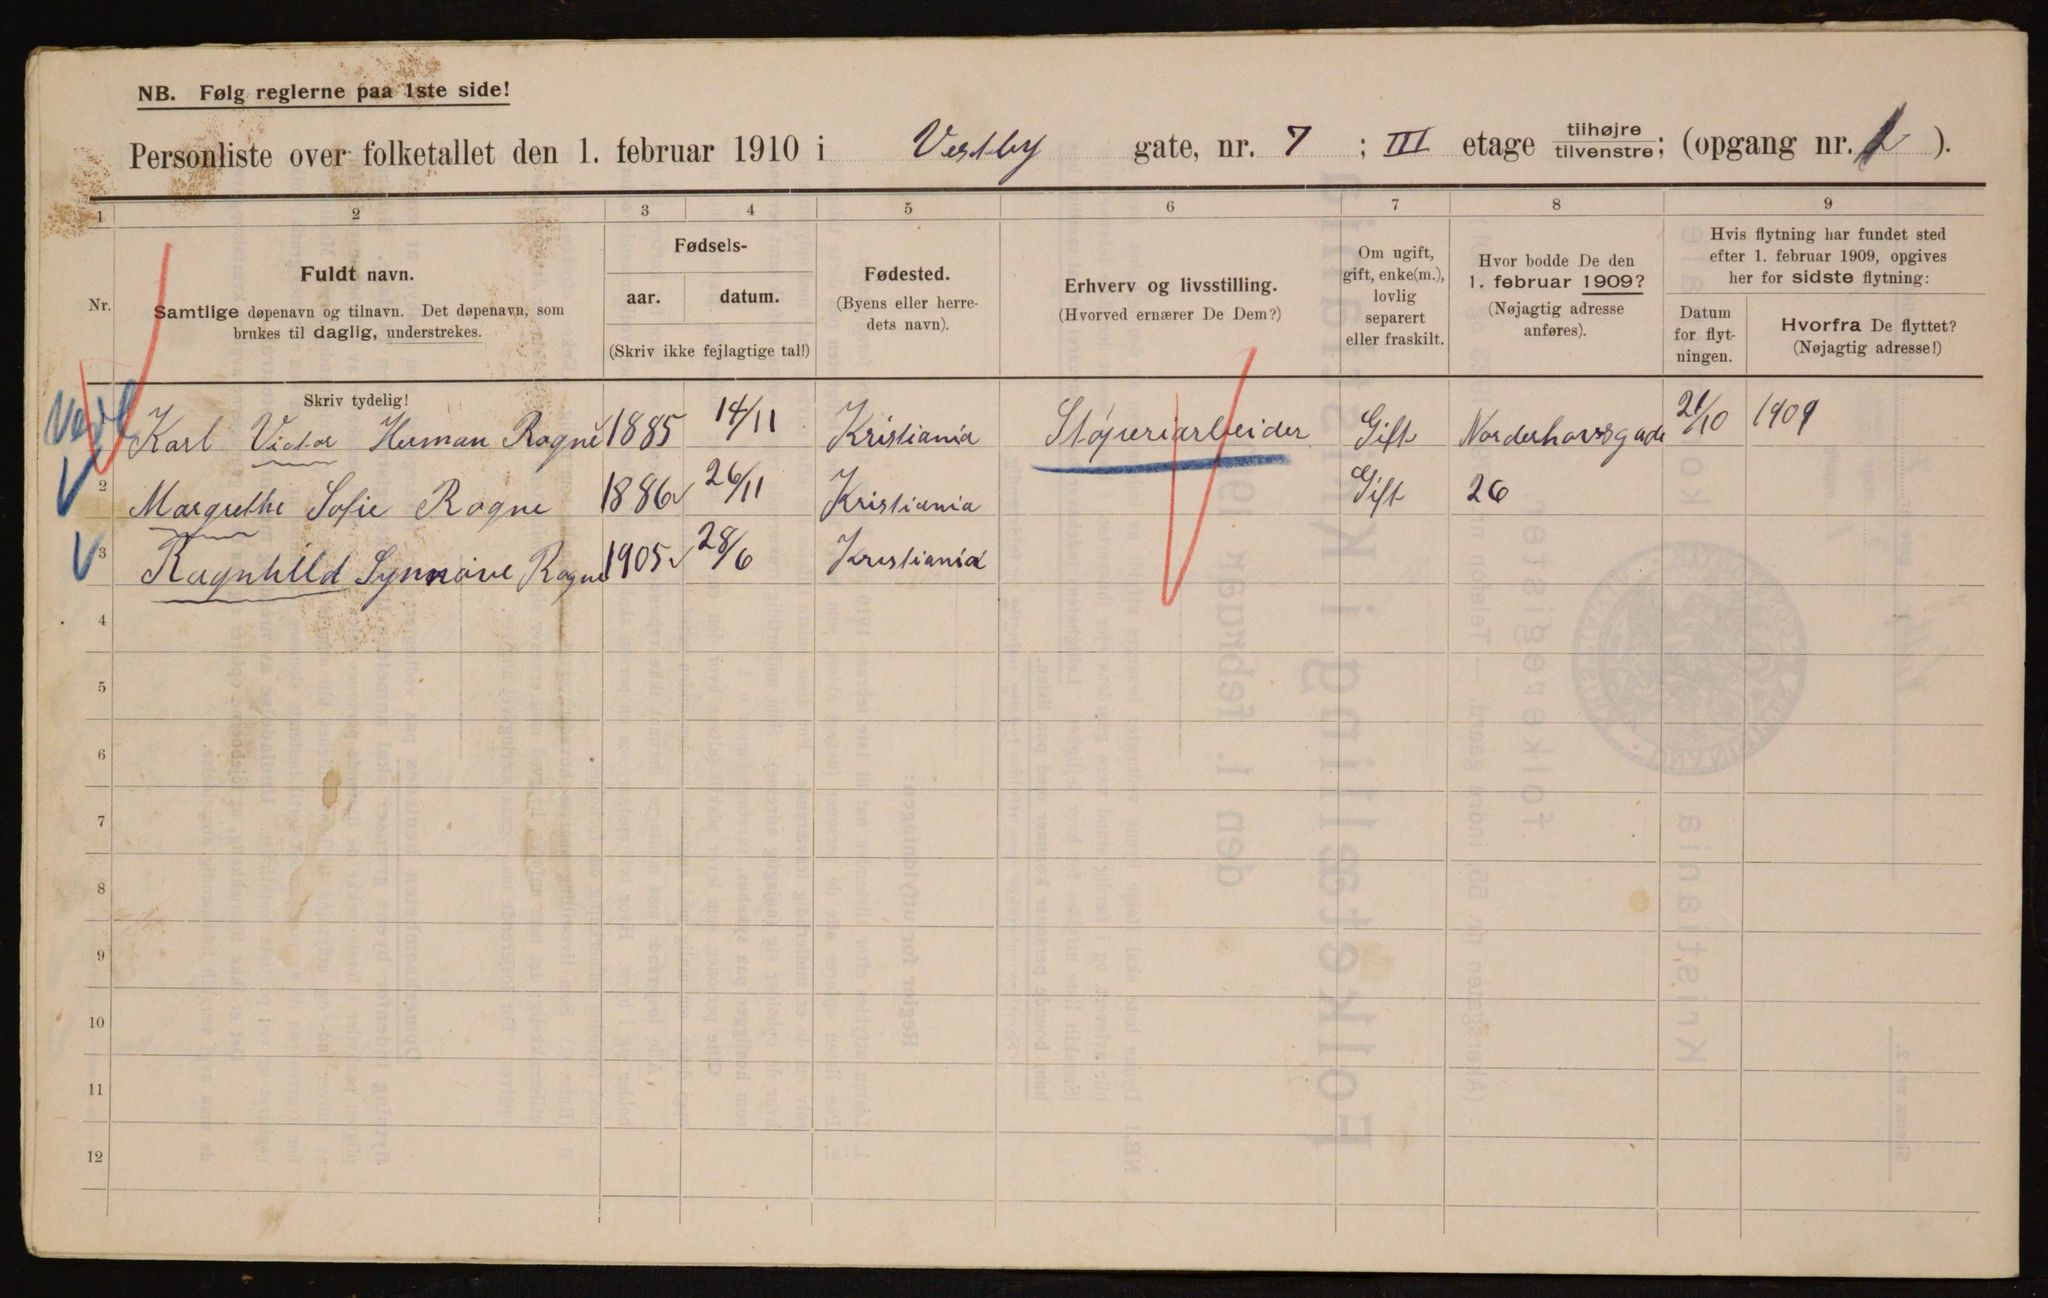 NB. Følg reglerne paa 1ste side!
Personliste over folketallet den 1. februar 1910 i Vestby gate, nr. 7 ; III etage tilhøjre tilvenstre; (opgang nr. ).
1 2 3 4 5 6 7 8 9
Nr.
Fuldt navn.
Samtlige døpenavn og tilnavn. Det døpenavn, som
brukes til daglig, understrekes.
Skriv tydelig!
Fødsels-
aar. datum.
(Skriv ikke fejlagtige tal!)
Fødested.
(Byens eller herre-
dets navn).
Erhverv og livsstilling.
(Hvorved ernærer De Dem?)
Om ugift,
gift, enke(m.),
lovlig
separert
eller fraskilt.
Hvor bodde De den
1. februar 1909?
(Nøjagtig adresse
anføres).
Hvis flytning har fundet sted
efter 1. februar 1909, opgives
her for sidste flytning:
Datum
for flyt-
ningen.
Hvorfra De flyttet?
(Nøjagtig adresse!)
Karl Victor Herman Rogne 1885 14/11 Kristiania Støperiarbeider Gift Norderhovsgade 21/10 1909
2 Margrethe Sofie Rogne 1886 26/11 Kristiania Gift 26
3 Ragnhild Synnøve Rogne 1905 28/6 Kristiania
4
5
6
7
8
9
10
11
12